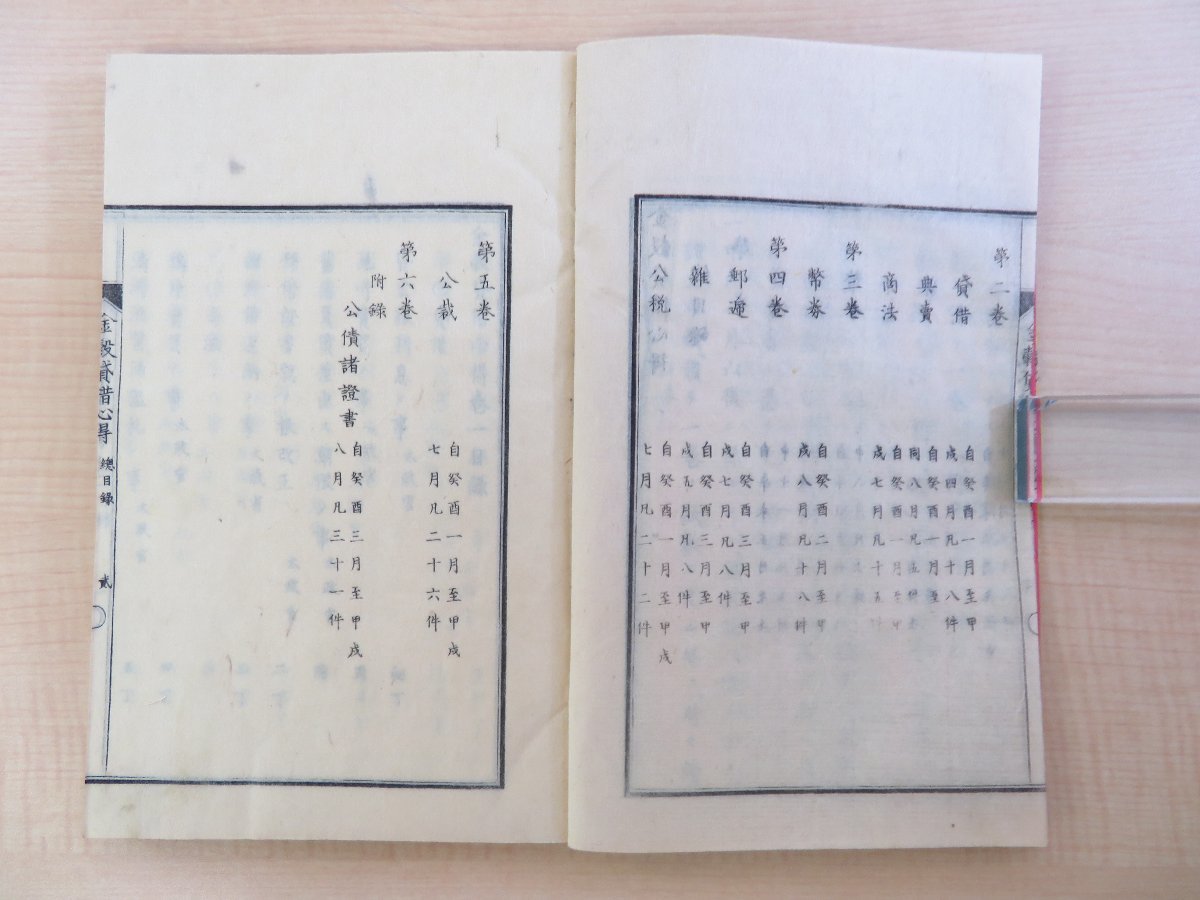 第二卷
貸借
自癸酉一月至甲
戌四月凡十八件
典賣
自癸酉一月至
同八月凡五件
商法
自癸酉一月至甲
戌七月凡十五件
第三卷
幣券
自癸酉二月至甲
戌八月凡十八件
第四卷
郵遞
自癸酉三月至甲
戌七月凡八件
雜
自癸酉三月至甲
戌五月凡八件
公税
自癸酉一月至甲戌
七月凡二十二件
第五卷
公裁
自癸酉一月至甲戌
七月凡二十六件
第六卷
附錄
公債諸證書
自癸酉三月至甲戌
八月凡三十一件
金穀貸借心得 總目錄 貳